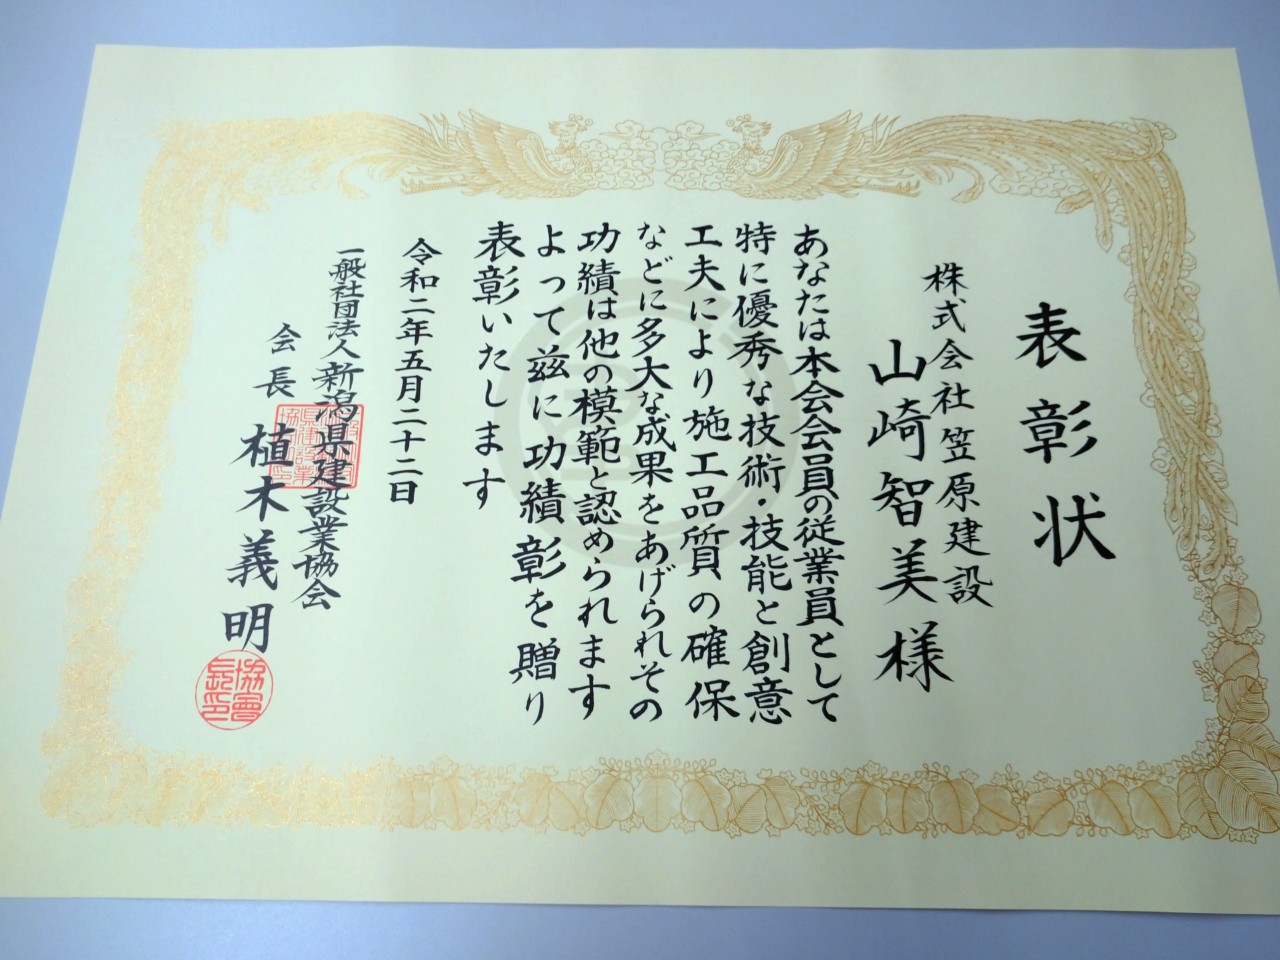 表彰状
株式会社笠原建設
山崎智美様
あなたは本会会員の従業員として
特に優秀な技術・技能と創意
工夫により施工品質の確保
などに多大な成果をあげられその
功績は他の模範と認められます
よって茲に功績彰を贈り
表彰いたします
令和二年五月二十二日
一般社団法人新潟県建設業協会
会長 植木義明
協會長印